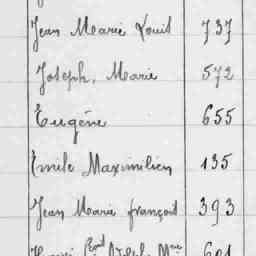 Jean Marie Louis 737
Joseph, Marie 572
Eugène 655
Emile Maximilien 135
Jean Marie françois 393